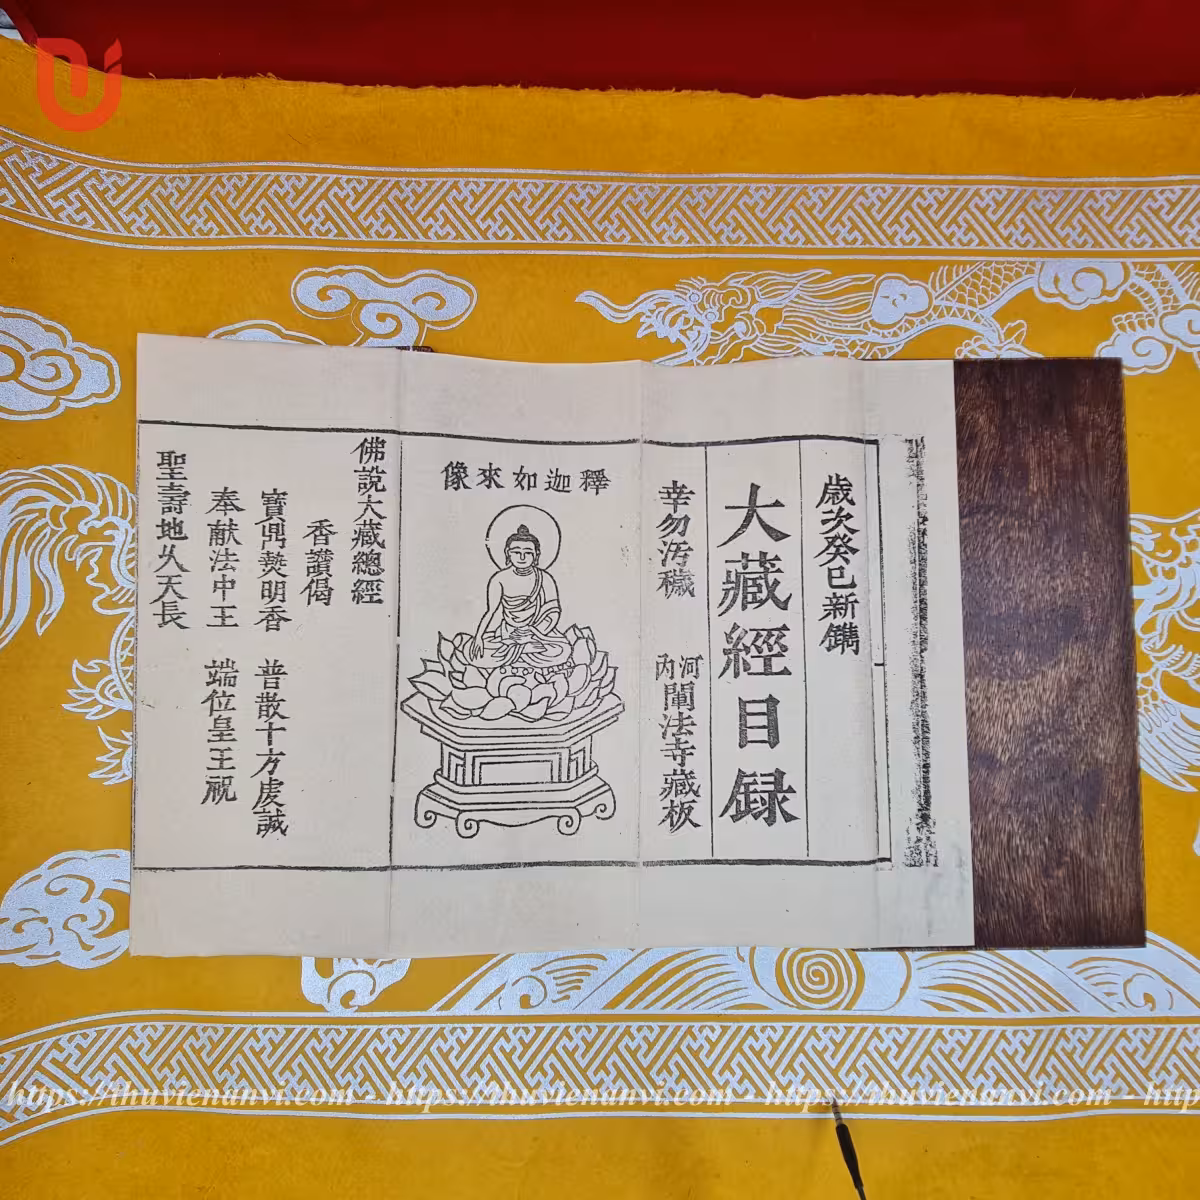 歲次癸巳新鐫
大藏經目録
幸勿汚穢
河內闡法寺藏板
釋迦如來像
佛說大藏總經
香讚偈
寶鼎爇明香 普散十方虔誠
奉献法中王 端位皇王祝
聖壽地久天長
https://thuvienunvi.com - https://thuvienunvi.com - https://thuvienunvi.com